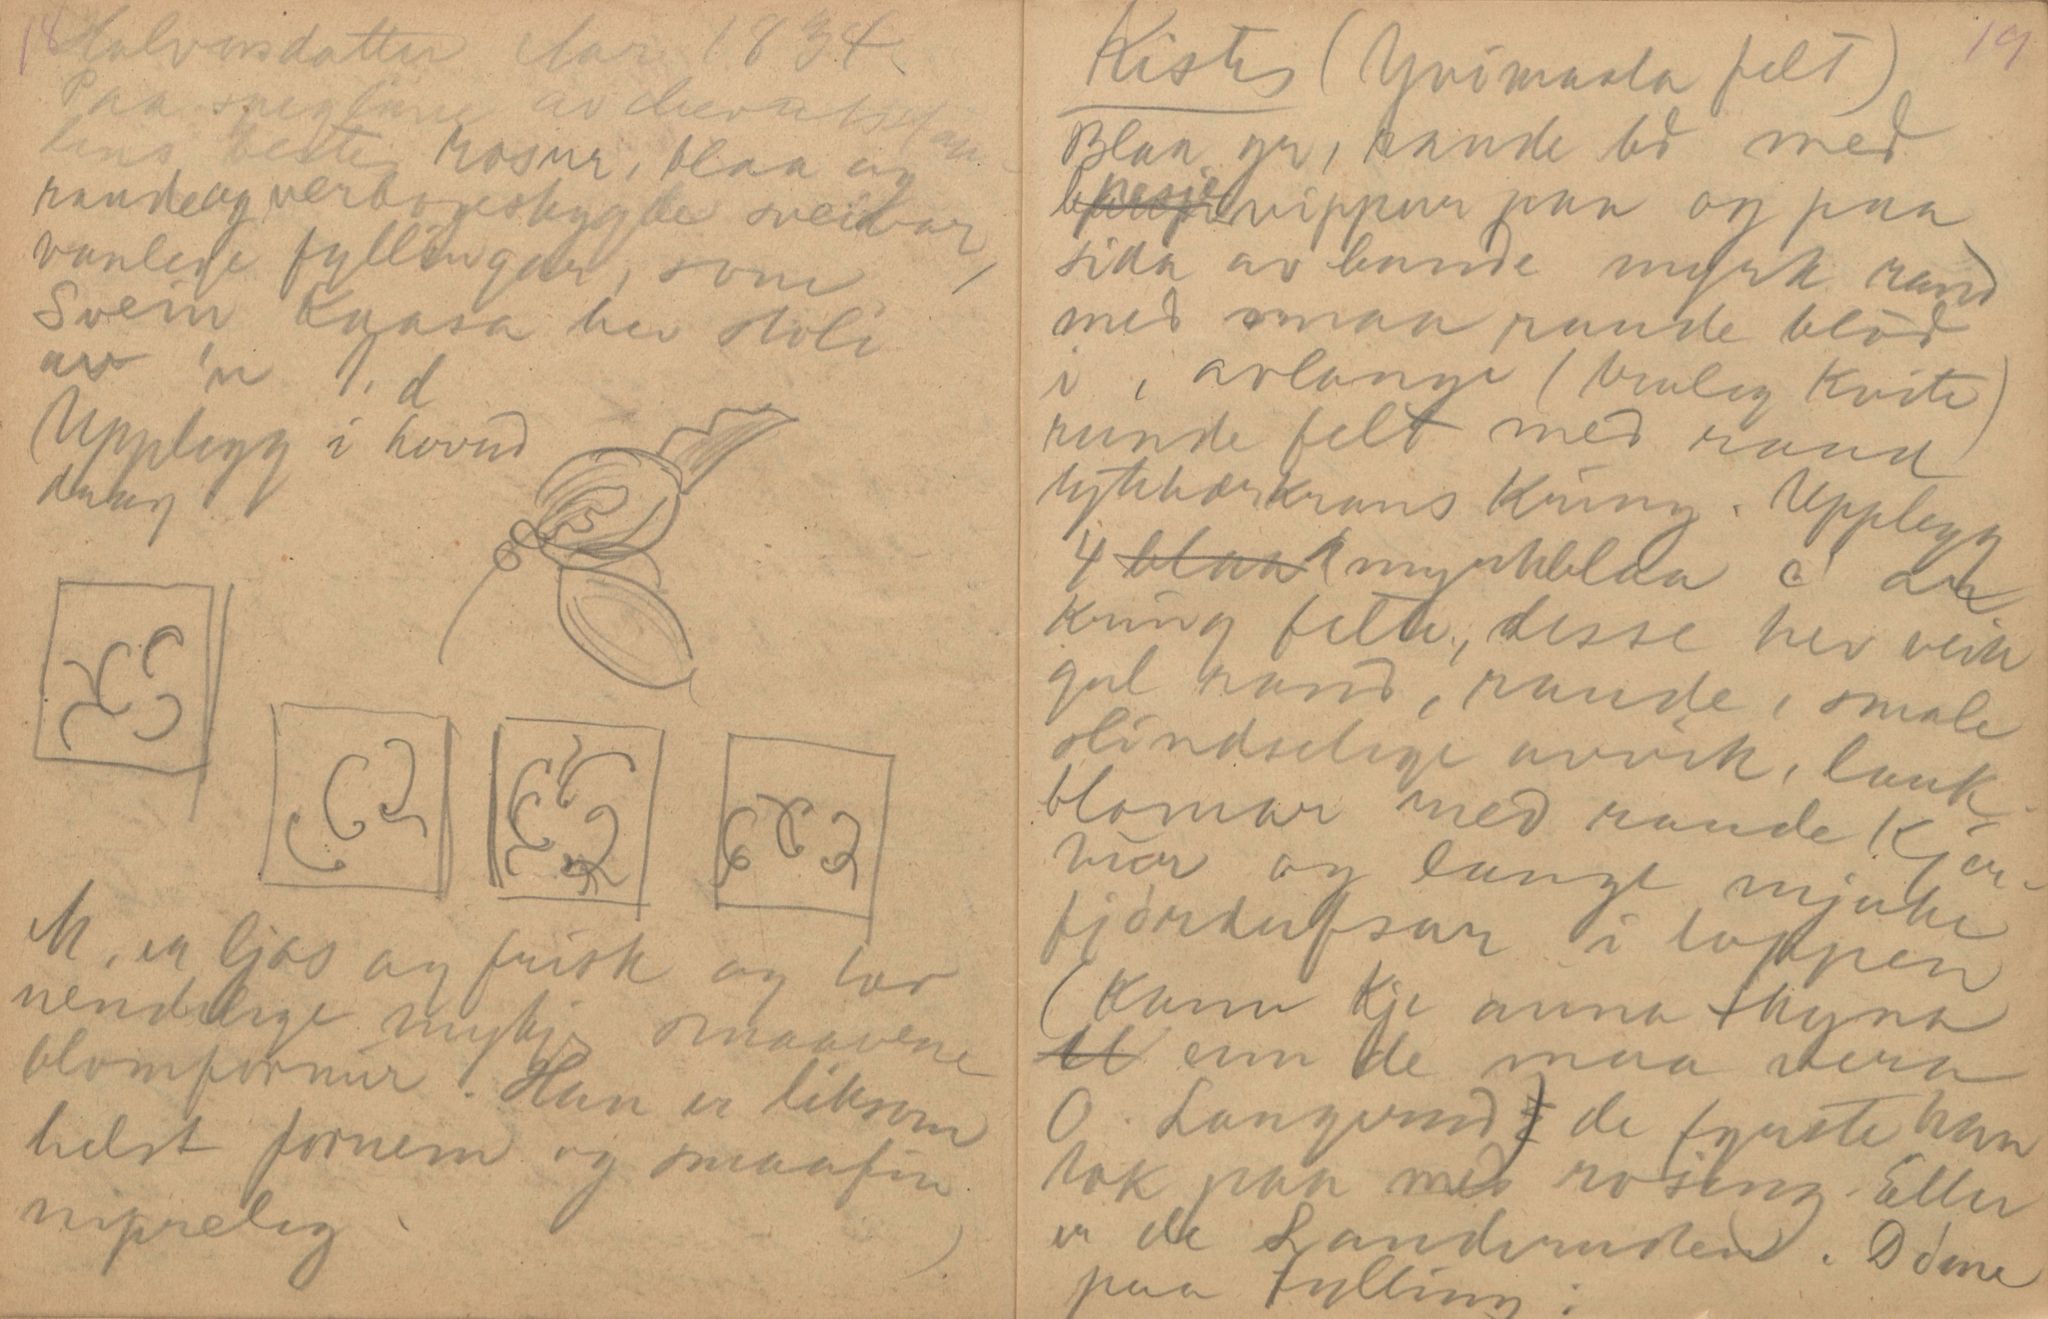 18
Halvorsdatter Aar 1834.
Paa speglane av
lins beste rosur, blaa og
raude og verbogeskygde sveivar,
vanlege fyllingar, som
Svein Kyaasa hev stoli
av 'n
(Upplegg i hovud
drag
M. er ljos og frisk og hev
nendelege mykje smaavene
blomformur. Han er liksom
helst fornem og smaafin
niprelig.
)
19
Kiste (Yvimaala felt)
Blaa gr, raude bd med
vippur paa og paa
sida av bande myrk rand
med smaa raude blod
i, avlange (truleg kvite)
runde felt med raud
tytebærkrans kring. Upplegg
4 blaa myrkblaa c ar
kring felta, desse hev veik
gul rand, raude, smale
slindselege avvik, lauk-
blomar med raude kjær-
nur og lange mjuke
fjordufsar i toppen
(Kann kje anna skyna
el enn de maa vera
O. Langerud) de fyrste han
tok paa med rosing. Eller
er de Landeruden. Döme
paa fylling: